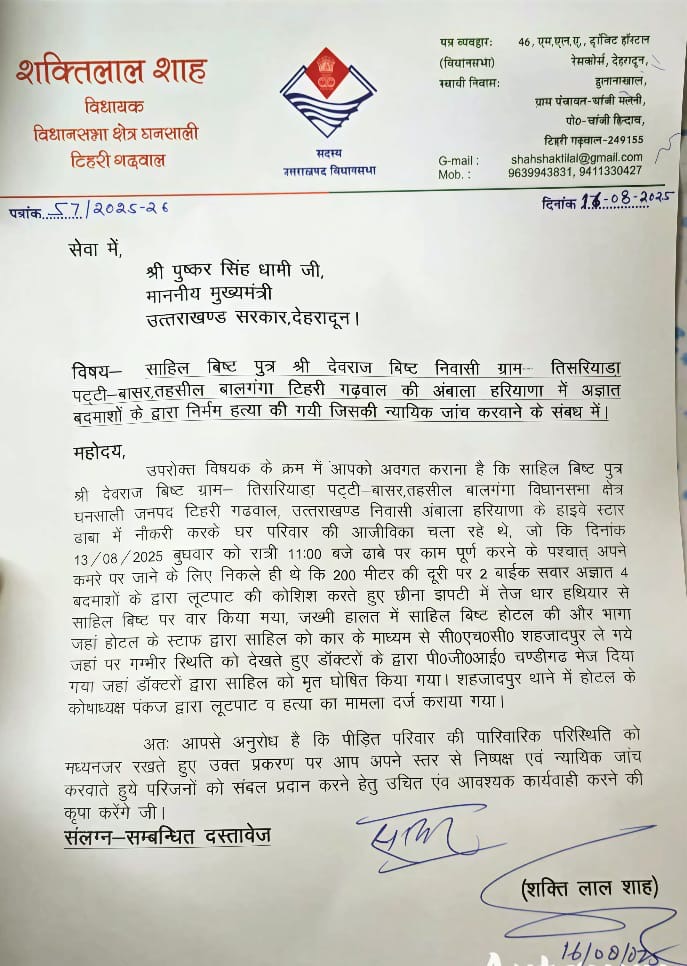 शक्तिलाल शाह
विधायक
विधानसभा क्षेत्र घनसाली
टिहरी गढवाल
सदस्य
उत्तराखण्ड विधानसभा
पत्र व्यवहार: 46, एम.एल.ए., ट्रांजिट हॉस्टल
(विधानसभा) रेसकोर्स, देहरादून,
स्थायी निवास: हुलानाखाल,
ग्राम पंचायत-चांजी मल्ली,
पो०-चांजी हिन्दाव,
टिहरी गढ़वाल-249155
G-mail : shahshaktilal@gmail.com
Mob. : 9639943831, 9411330427
पत्रांक 57/2025-26
दिनांक 16-08-2025
सेवा में,
श्री पुष्कर सिंह धामी जी,
माननीय मुख्यमंत्री
उत्तराखण्ड सरकार,देहरादून।
विषय– साहिल बिष्ट पुत्र श्री देवराज बिष्ट निवासी ग्राम– तिसरियाडा
पट्टी–बासर,तहसील बालगंगा टिहरी गढ़वाल की अंबाला हरियाणा में अज्ञात
बदमाशों के द्वारा निर्मम हत्या की गयी जिसकी न्यायिक जांच करवाने के संबध में।
महोदय,
उपरोक्त विषयक के क्रम में आपको अवगत कराना है कि साहिल बिष्ट पुत्र
श्री देवराज बिष्ट ग्राम– तिसरियाडा पट्टी–बासर,तहसील बालगंगा विधानसभा क्षेत्र
घनसाली जनपद टिहरी गढवाल, उत्तराखण्ड निवासी अंबाला हरियाणा के हाइवे स्टार
ढाबा में नौकरी करके घर परिवार की आजीविका चला रहे थे, जो कि दिनांक
13/08/2025 बुधवार को रात्री 11:00 बजे ढाबे पर काम पूर्ण करने के पश्चात् अपने
कमरे पर जाने के लिए निकले ही थे कि 200 मीटर की दूरी पर 2 बाईक सवार अज्ञात 4
बदमाशों के द्वारा लूटपाट की कोशिश करते हुए छीना झपटी में तेज धार हथियार से
साहिल बिष्ट पर वार किया गया, जख्मी हालत में साहिल बिष्ट होटल की और भागा
जहां होटल के स्टाफ द्वारा साहिल को कार के माध्यम से सी०एच०सी० शहजादपुर ले गये
जहां पर गम्भीर स्थिति को देखते हुए डॉक्टरों के द्वारा पी०जी०आई० चण्डीगढ भेज दिया
गया जहां डॉक्टरों द्वारा साहिल को मृत घोषित किया गया। शहजादपुर थाने में होटल के
कोषाध्यक्ष पंकज द्वारा लूटपाट व हत्या का मामला दर्ज कराया गया।
अतः आपसे अनुरोध है कि पीड़ित परिवार की पारिवारिक परिस्थिति को
मध्यनजर रखते हुए उक्त प्रकरण पर आप अपने स्तर से निष्पक्ष एवं न्यायिक जांच
करवाते हुये परिजनों को संबल प्रदान करने हेतु उचित एंव आवश्यक कार्यवाही करने की
कृपा करेंगे जी।
संलग्न–सम्बन्धित दस्तावेज
(शक्ति लाल शाह)
16/08/025